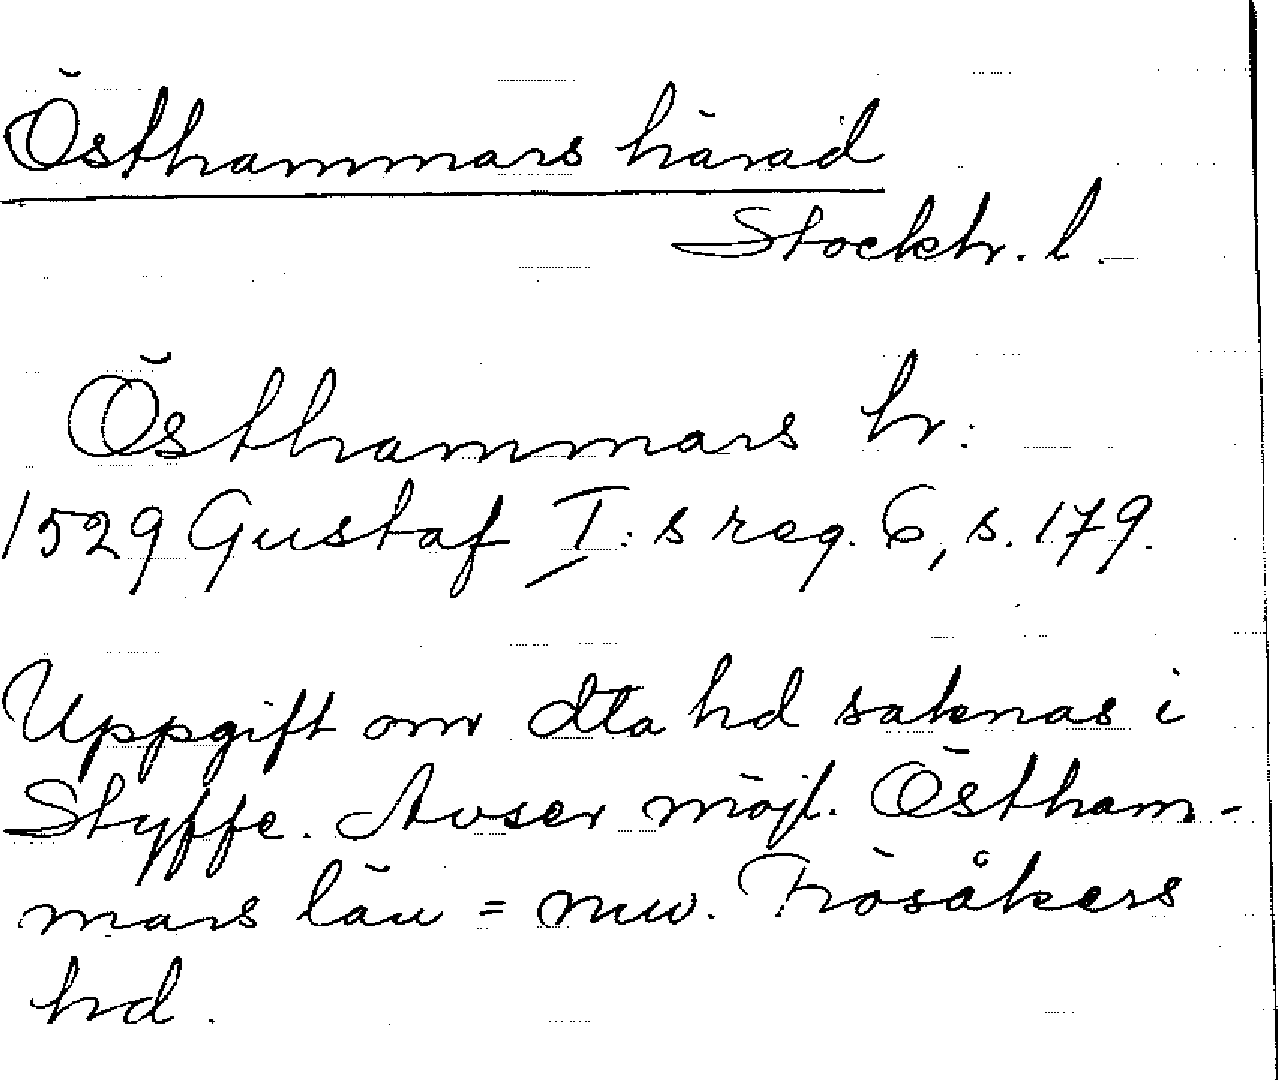 Östhammars härad
Stockh. l.
Östhammars hr:
1529 Gustaf I:s reg. 6, s. 179.
Uppgift om dtta hd saknas i
Styffe. Avser möjl. Östham-
mars län = nuv. Frösåkers
hd.